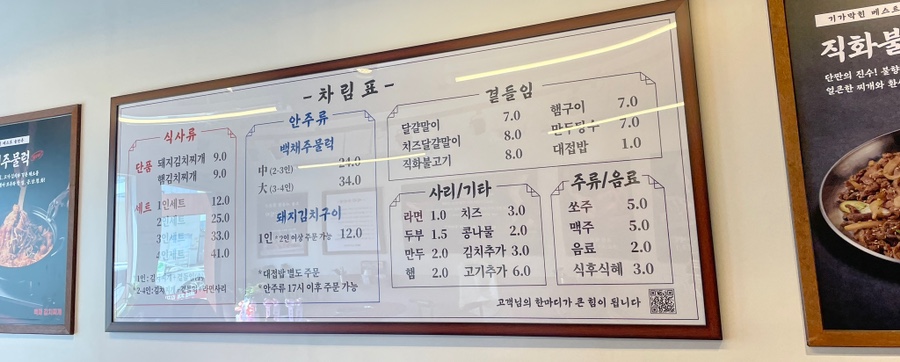 - 차림표 -
식사류
단품 돼지김치찌개 9.0
햄김치찌개 9.0
세트 1인세트 12.0
2인세트 25.0
3인세트 33.0
4인세트 41.0
안주류
백채주물럭
中 (2-3인) 24.0
大 (3-4인) 34.0
돼지김치구이
1인 *2인 이상 주문 가능 12.0
*대접밥 별도 주문
*안주류 17시 이후 주문 가능
곁들임
달걀말이 7.0
치즈달걀말이 8.0
직화불고기 8.0
햄구이 7.0
만두탕수 7.0
대접밥 1.0
사리/기타
라면 1.0
두부 1.5
만두 2.0
햄 2.0
치즈 3.0
콩나물 2.0
김치추가 3.0
고기추가 6.0
주류/음료
쏘주 5.0
맥주 5.0
음료 2.0
식후식혜 3.0
고객님의 한마디가 큰 힘이 됩니다
주물럭
기가막힌
직화불
단짠의 진수! 불향
얼큰한 찌개와